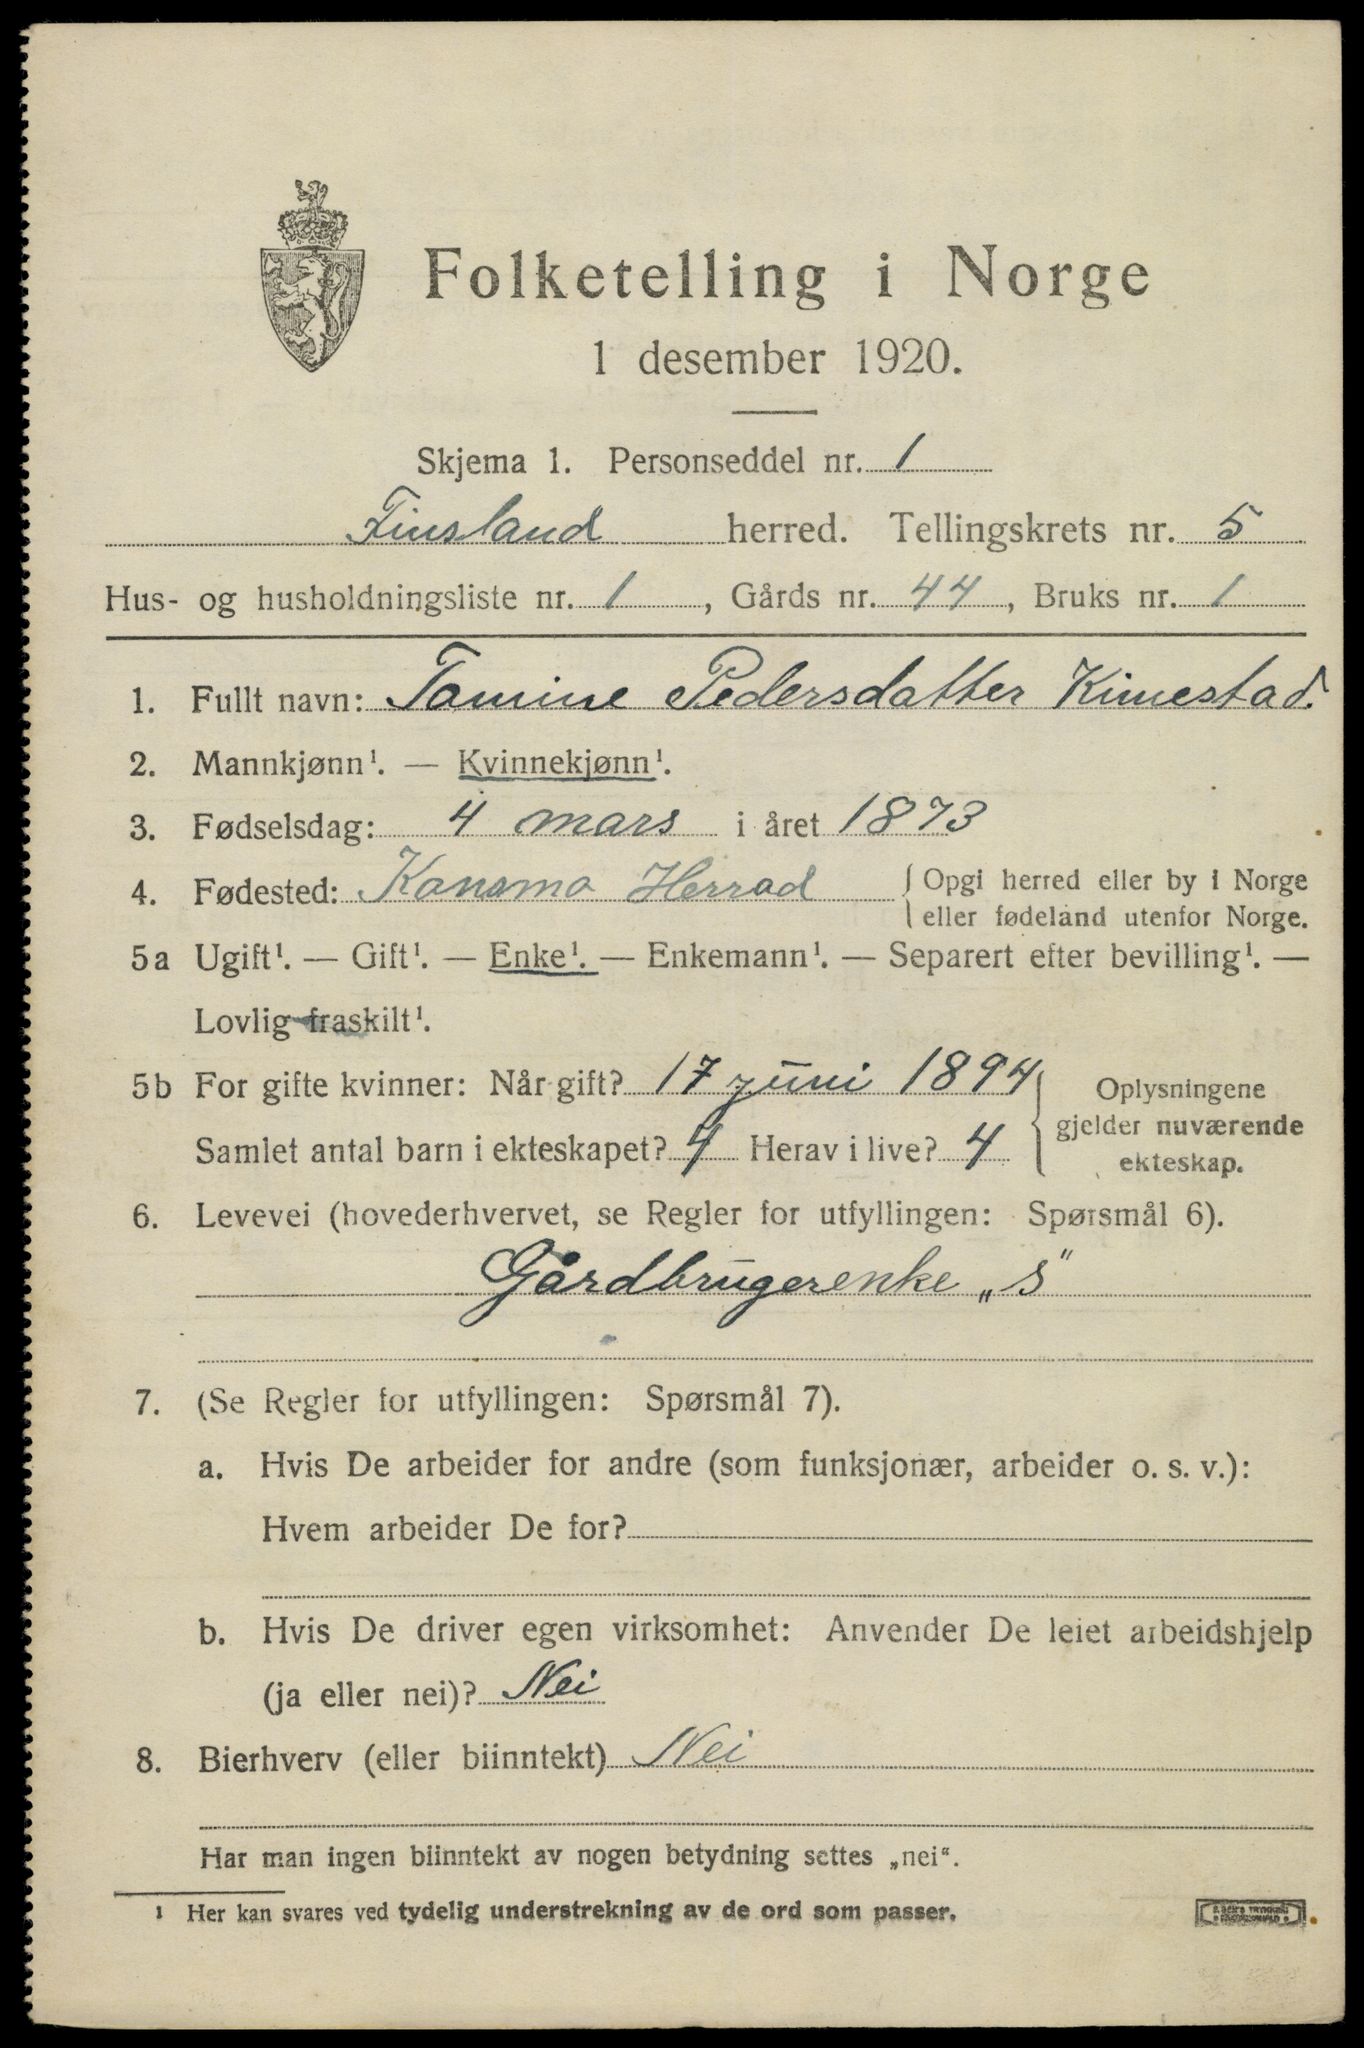 Folketelling i Norge
1 desember 1920.
Skjema 1. Personseddel nr. 1
Finsland herred. Tellingskrets nr. 5
Hus- og husholdningsliste nr. 1, Gårds nr. 44, Bruks nr. 1
1. Fullt navn: Tamine Pedersdatter Kimestad.
2. Mannkjønn¹. — Kvinnekjønn¹.
3. Fødselsdag: 4 mars i året 1873
4. Fødested: Konsmo Herrad {Opgi herred eller by i Norge
eller fødeland utenfor Norge.
5a Ugift¹. — Gift¹. — Enke¹. — Enkemann¹. — Separert efter bevilling¹. —
Lovlig fraskilt¹.
5b For gifte kvinner: Når gift? 17 juni 1894
Samlet antal barn i ekteskapet? 4 Herav i live? 4
Oplysningene
gjelder nuværende
ekteskap.
6. Levevei (hovederhvervet, se Regler for utfyllingen: Spørsmål 6).
Gårdbrugerenke „s"
7. (Se Regler for utfyllingen: Spørsmål 7).
a. Hvis De arbeider for andre (som funksjonær, arbeider o. s. v.):
Hvem arbeider De for?
b. Hvis De driver egen virksomhet: Anvender De leiet arbeidshjelp
(ja eller nei)? Nei
8. Bierhverv (eller biinntekt) Nei
Har man ingen biinntekt av nogen betydning settes „nei".
¹ Her kan svares ved tydelig understrekning av de ord som passer.